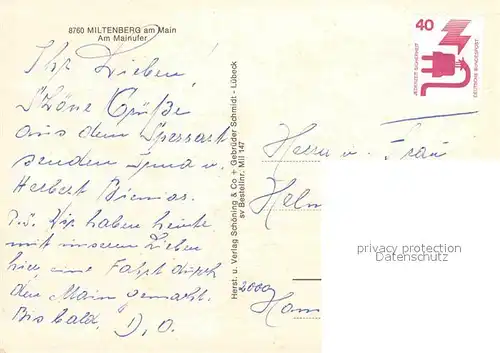 8760 MILTENBERG am Main
Am Mainufer
Ihr Lieben!
Schöne Grüße
aus dem Spessart
senden Irma u.
Herbert
P.S. Wir haben heute
mit unseren Lieben
hier eine Fahrt durch
den Main gemacht.
Bis bald, D, O.
Herst. u. Verlag Schöning & Co + Gebrüder Schmidt - Lübeck
sv Bestellnr. Mil 147
40
JEDERZEIT SICHERHEIT
DEUTSCHE BUNDESPOST
Herrn u. Frau
Helm
privacy protection
Datenschutz
2000
Ham